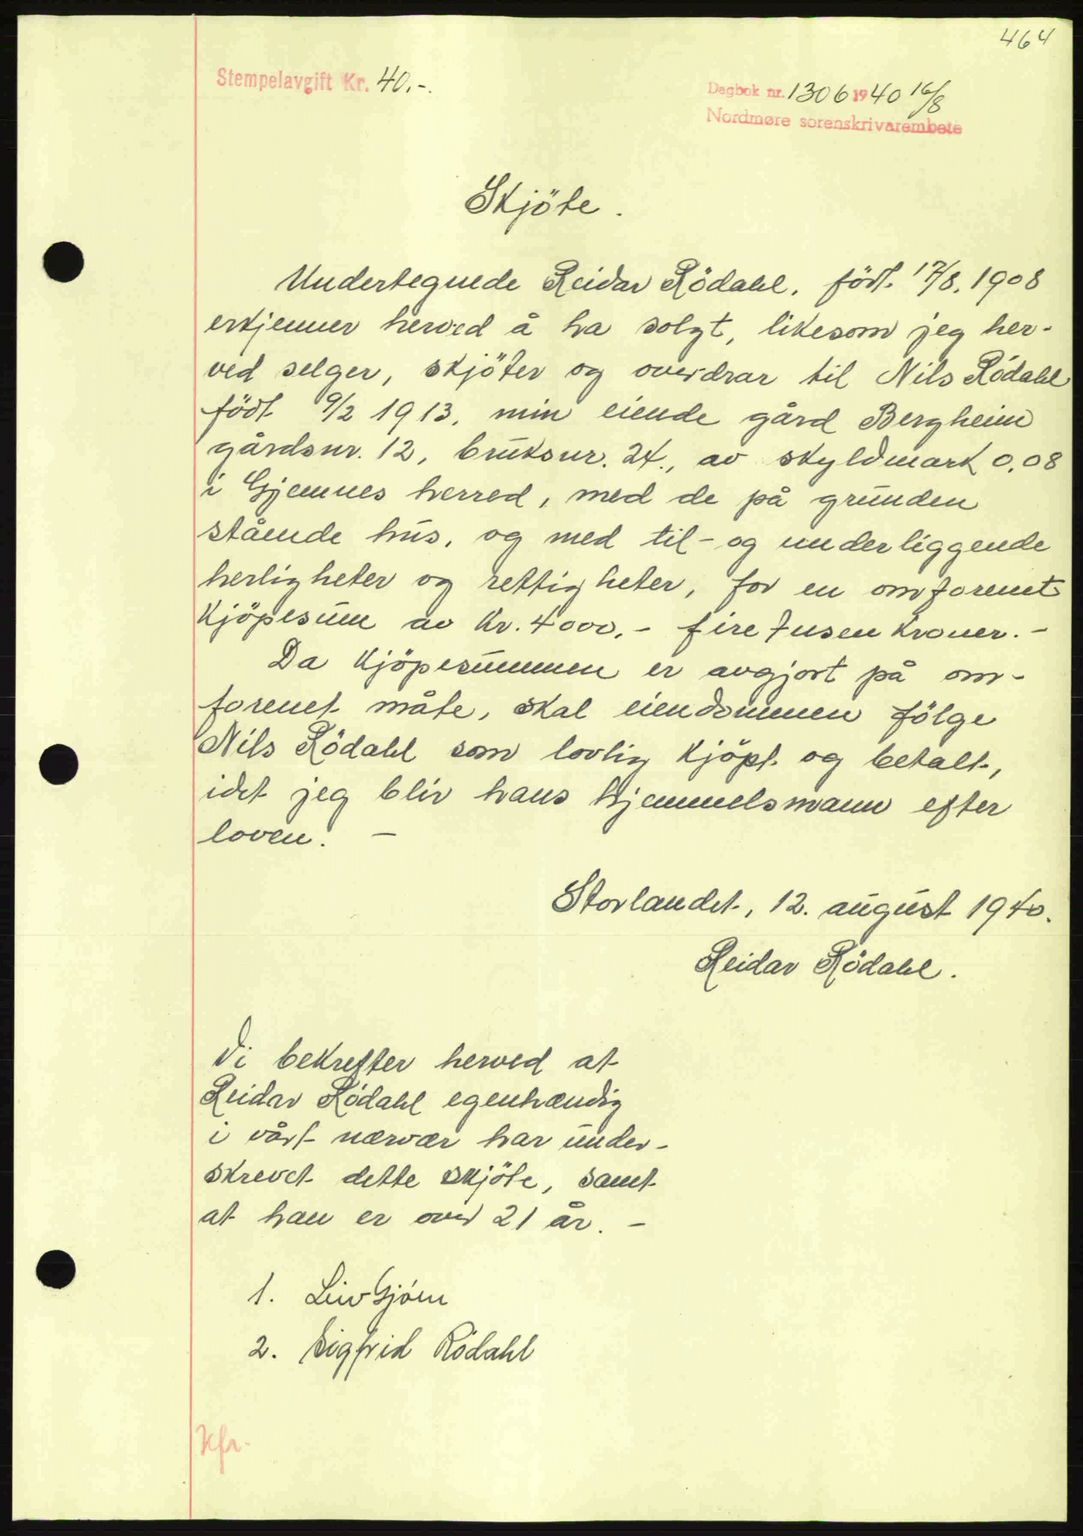 464
Stempelavgift Kr. 40.-.
Dagbok nr. 1306 1940 16/8
Nordmøre sorenskrivarembete
Skjöte.
Undertegnede Reidar Rödahl, födt 17/8. 1908
erkjenner herved å ha solgt, likesom jeg her-
ved selger, skjöter og overdrar til Nils Rödahl
födt 9/2 1913, min eiende gård Bergheim
gårdsnr. 12, bruksnr. 24., av skyldmark 0,08
i Gjemnes herred, med de på grunden
stående hus, og med til- og underliggende
herligheter og rettigheter, for en omforenet
Kjöpesum av Kr. 4000,- fire tusen kroner. -
Da Kjöpesummen er avgjort på om-
forenet måte, skal eiendommen fölge
Nils Rödahl som lovlig kjöpt og betalt,
idet jeg blir hans hjemmelsmann efter
loven. -
Storlandet, 12. august 1940.
Reidar Rödahl.
Vi bekrefter herved at
Reidar Rödahl egenhændig
i vårt nærvær har under-
skrevet dette skjöte, samt
at han er over 21 år. -
1. Leiv Gjöm
2. Sigfrid Rödahl
Kfr.